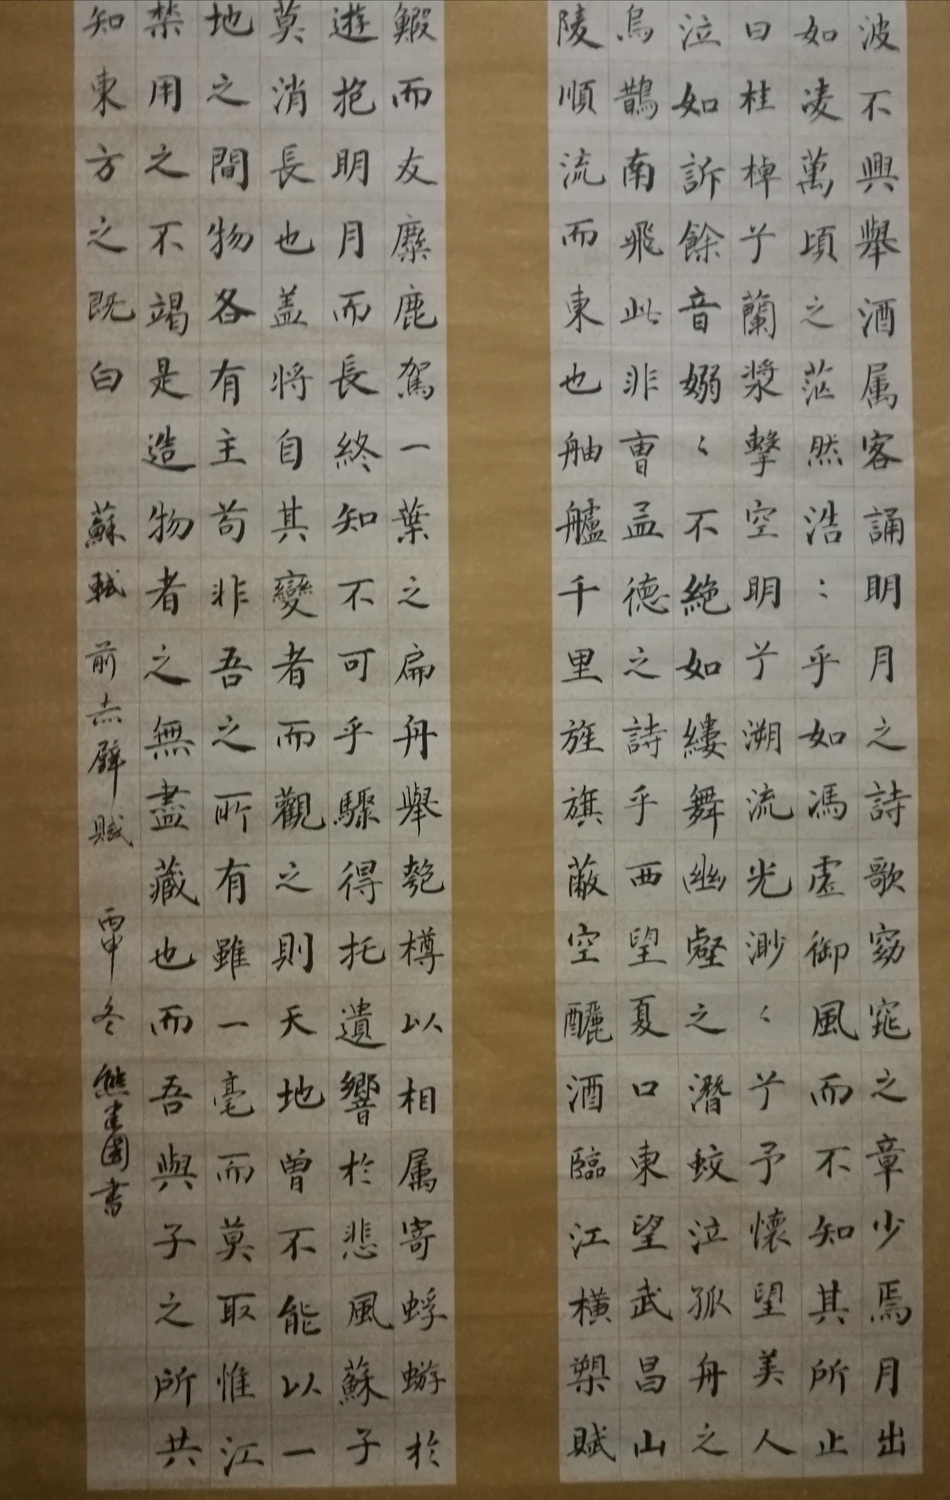 波不興舉酒属客誦明月之詩歌窈窕之章少焉月出
如凌萬頃之茫然浩：乎如馮虛御風而不知其所止
曰桂棹兮蘭漿擊空明兮溯流光渺〻兮予懷望美人
泣如訴餘音嫋〻不絕如縷舞幽壑之潛蛟泣孤舟之
烏鵲南飛此非曹孟德之詩乎西望夏口東望武昌山
陵順流而東也舳艫千里旌旗蔽空釃酒臨江橫槊賦
鰕而友麋鹿駕一葉之扁舟舉匏樽以相属寄蜉蝣於
遊抱明月而長終知不可乎驟得托遺響於悲風蘇子
莫消長也盖將自其變者而觀之則天地曾不能以一
地之間物各有主苟非吾之所有雖一毫而莫取惟江
禁用之不竭是造物者之無盡藏也而吾與子之所共
知東方之既白 蘇軾 前赤壁賦 丙申冬 熊建國書